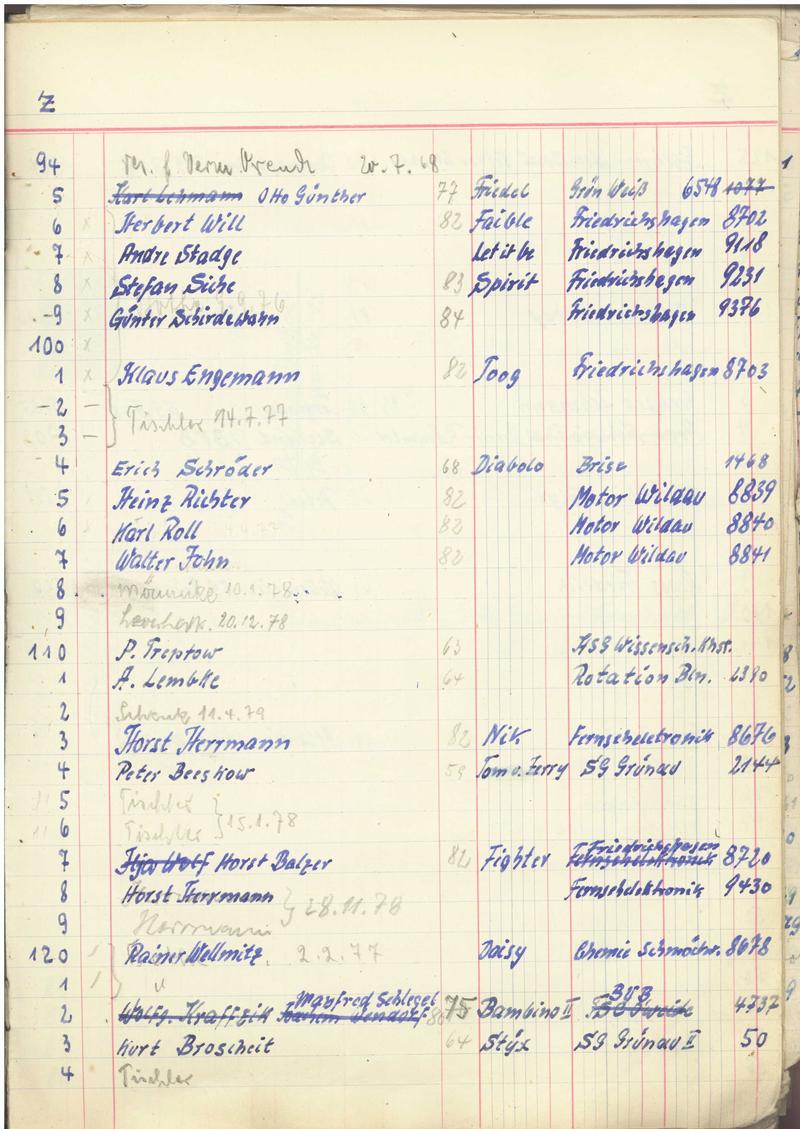 Z
94 20.7.68
5 Karl Lehmann Otto Günther 77 Friedel Grün Weiß 6548 1077
6 x Herbert Will 82 Faible Friedrichshagen 8702
7 x Andre Stadge Let it be Friedrichshagen 9118
8 x Stefan Siche 83 Spirit Friedrichshagen 9231
-9 x Günter Schirdewahn 84 Friedrichshagen 9376
100 x
1 x Klaus Engemann 82 Toog Friedrichshagen 8703
-2 -
Tischler 14.7.77
3 -
4 Erich Schröder 68 Diabolo Brise 1468
5 Heinz Richter 82 Motor Wildau 8839
6 Karl Roll 82 Motor Wildau 8840
7 Walter John 82 Motor Wildau 8841
8 10.1.78
9 20.12.78
110 P. Treptow 63 HSG Wissensch.
1 A. Lembke 64 Rotation Bln. 1380
2 11.4.79
3 Horst Herrmann 82 Nik Fernsehelektronik 8676
4 Peter Beeskow 59 Tom u. Jerry SG Grünau 2144
5 Tischler
15.1.78
6 Tischler
Friedrichshagen
7 Ilja Wolf Horst Balzer 82 Fighter Fernsehelektronik 8720
8 Horst Herrmann Fernsehelektronik 9430
28.11.78
9 Herrmann
120 Rainer Wellmitz 2.2.77 Daisy Chemie Schmöckw. 8678
1 "
Manfred Schlegel BVB
2 Wolfg. Kraffzik Jochem Wendorf 75 Bambino II 4737
3 Kurt Broscheit 64 Styx SG Grünau II 50
4 Tischler